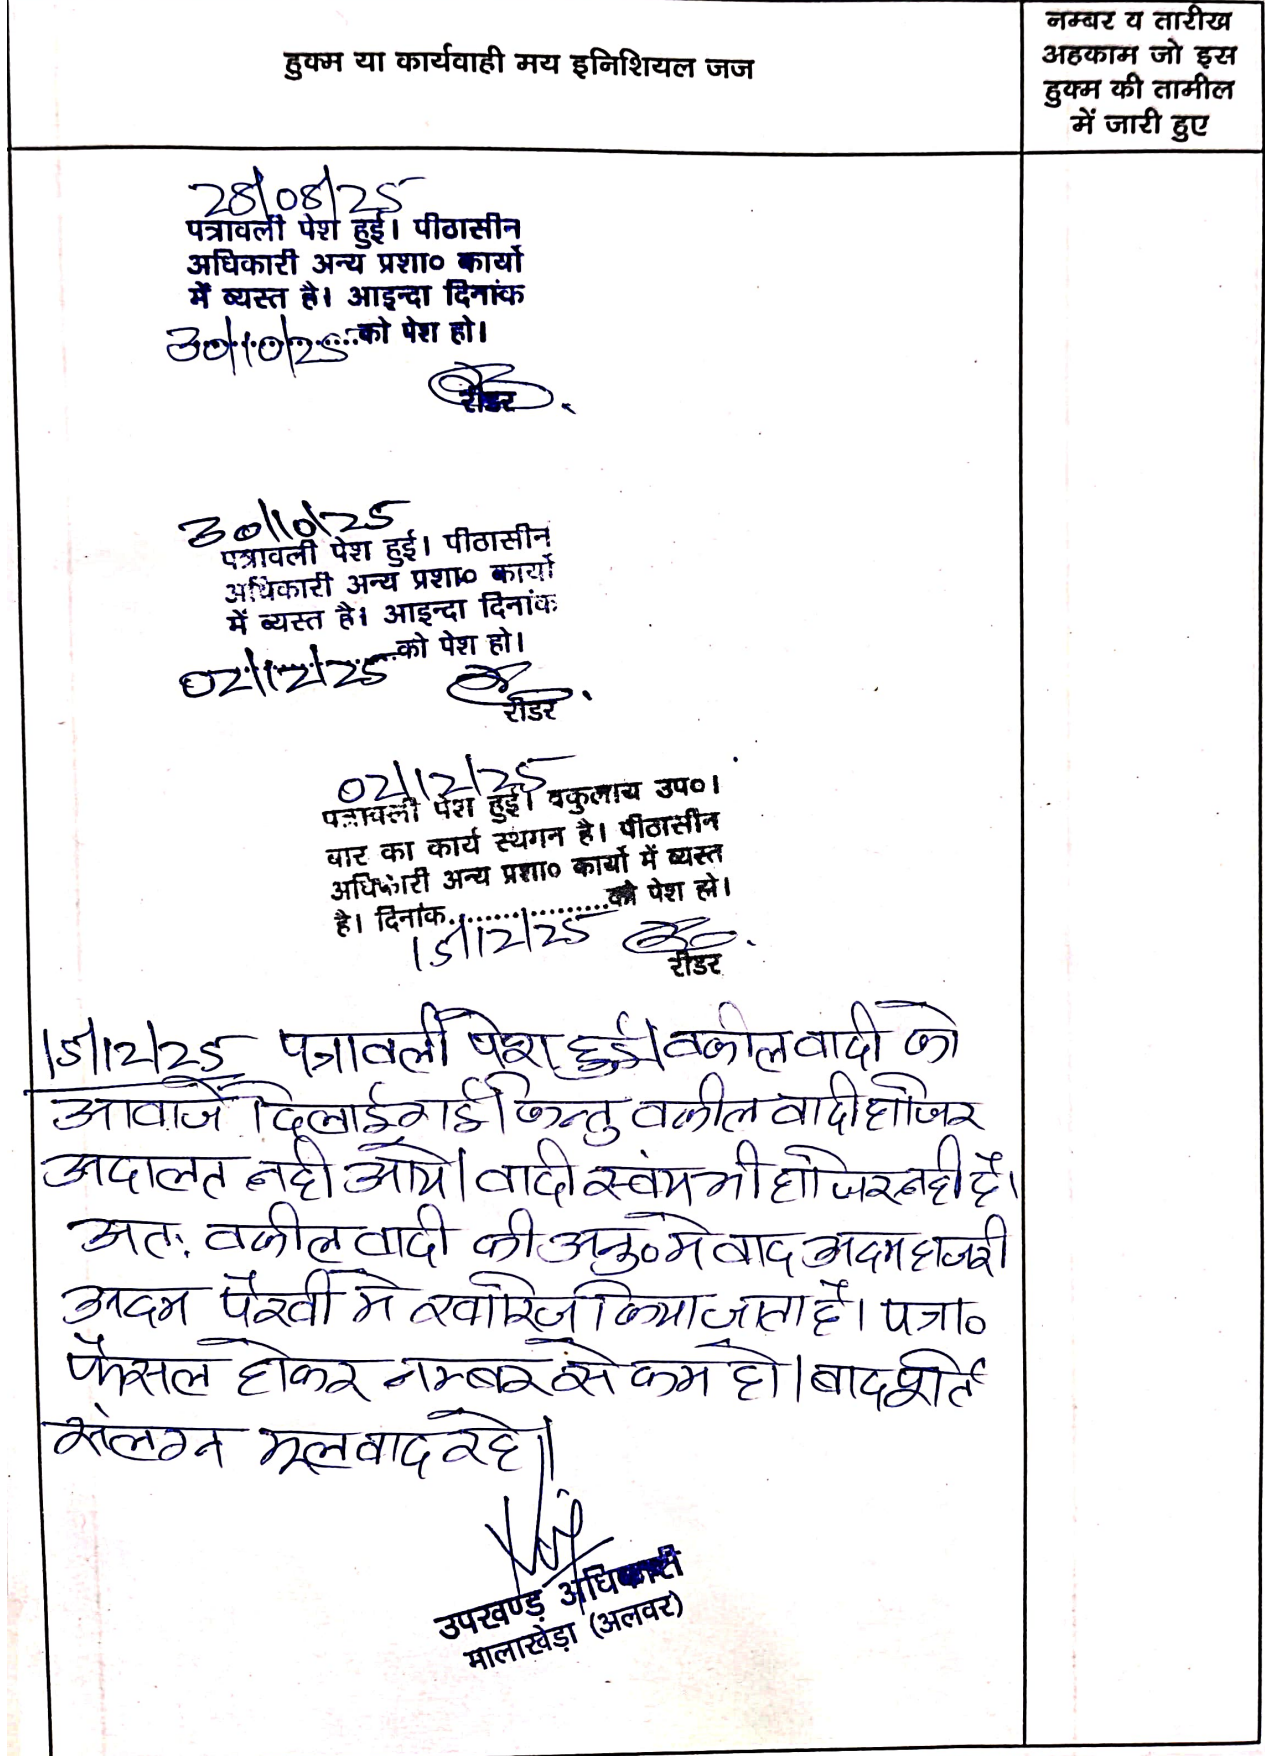 हुक्म या कार्यवाही मय इनिशियल जज
नम्बर व तारीख
अहकाम जो इस
हुक्म की तामील
में जारी हुए
28/08/25
पत्रावली पेश हुई। पीठासीन
अधिकारी अन्य प्रशा० कार्यो
में व्यस्त है। आइन्दा दिनांक
30/10/25 को पेश हो।
रीडर
30/10/25
पत्रावली पेश हुई। पीठासीन
अधिकारी अन्य प्रशा० कार्यो
में व्यस्त है। आइन्दा दिनांक
02/12/25 को पेश हो।
रीडर
02/12/25
पत्रावली पेश हुई। वकुलाय उप०।
बार का कार्य स्थगन है। पीठासीन
अधिकारी अन्य प्रशा० कार्यो में व्यस्त
है। दिनांक..................को पेश हो।
15/12/25
रीडर
15/12/25 पत्रावली पेश हुई। वकील वादी को
आवाजें दिलाई गई। किन्तु वकील वादी हाजिर
अदालत नही आये। वादी स्वंय भी हाजिर नही है।
अतः वकील वादी की अनु० मे वाद अदम हाजरी
अदम पैरवी मे खारिज किया जाता है। पत्रा०
फैसल होकर नम्बर से कम हो। बाद पूर्ति
संलग्न मूल वाद रहे।
उपखण्ड अधिकारी
मालाखेड़ा (अलवर)